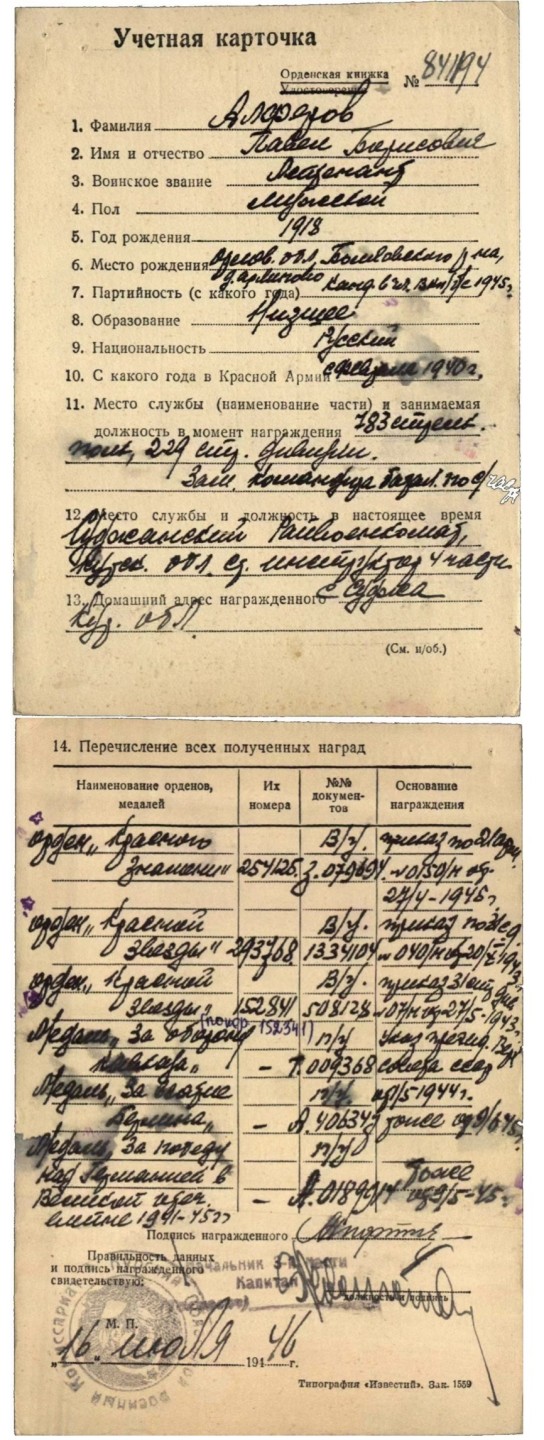 Учетная карточка
Орденская книжка
Удостоверение
№ 841194
1. Фамилия Алферов
2. Имя и отчество Павел Борисович
3. Воинское звание Лейтенант
4. Пол Мужской
5. Год рождения 1918
6. Место рождения Орлов. обл., Болховского р-на,
7. Партийность (с какого года) Канд. в чл. ВКП/б/ с 1945 г.
8. Образование Низшее
9. Национальность Русский
10. С какого года в Красной Армии с февраля 1940 г.
11. Место службы (наименование части) и занимаемая
должность в момент награждения 783 стрелк.
полк, 229 стр. дивизии.
Зам. командира батал. по с/части
12. Место службы и должность в настоящее время
Суджанский Райвоенкомат,
Курск. обл. ст. инструктор 4 части
13. Домашний адрес награжденного г. Суджа
Кур. обл.
(См. н/об.)
14. Перечисление всех полученных наград
Наименование орденов, медалей
Их номера
№№ документов
Основание награждения
орден „Красного В/у. приказ по
Знамени" 254125 З. 079694 № 0150/н от
27/4-1945 г.
орден „Красной В/у. приказ
Звезды" 293768 1334104 № 040/н от 20/
орден „Красной В/у. приказ
Звезды" 152841 508128 № 07/н от 27/5-1943 г.
(повтор. 152341)
Медаль „За оборону п/у Указ презид. Верх.
Кавказа" – Т. 009368 союза ССР
Медаль „За взятие п/у. от 1/5-1944 г.
Берлина" – А. 406343 тоже от 9/6-45 г.
Медаль „За победу п/у
над Германией в тоже
Великой отеч. – А. 0189014 от 9/5-45 г.
войне 1941-45 гг
Подпись награжденного
Правильность данных
и подпись награжденного
свидетельствую:
Начальник 3-й части
Капитан
должность и подпись
М. П.
„16" июля 1946 г.
Типография «Известий». Зак. 1559